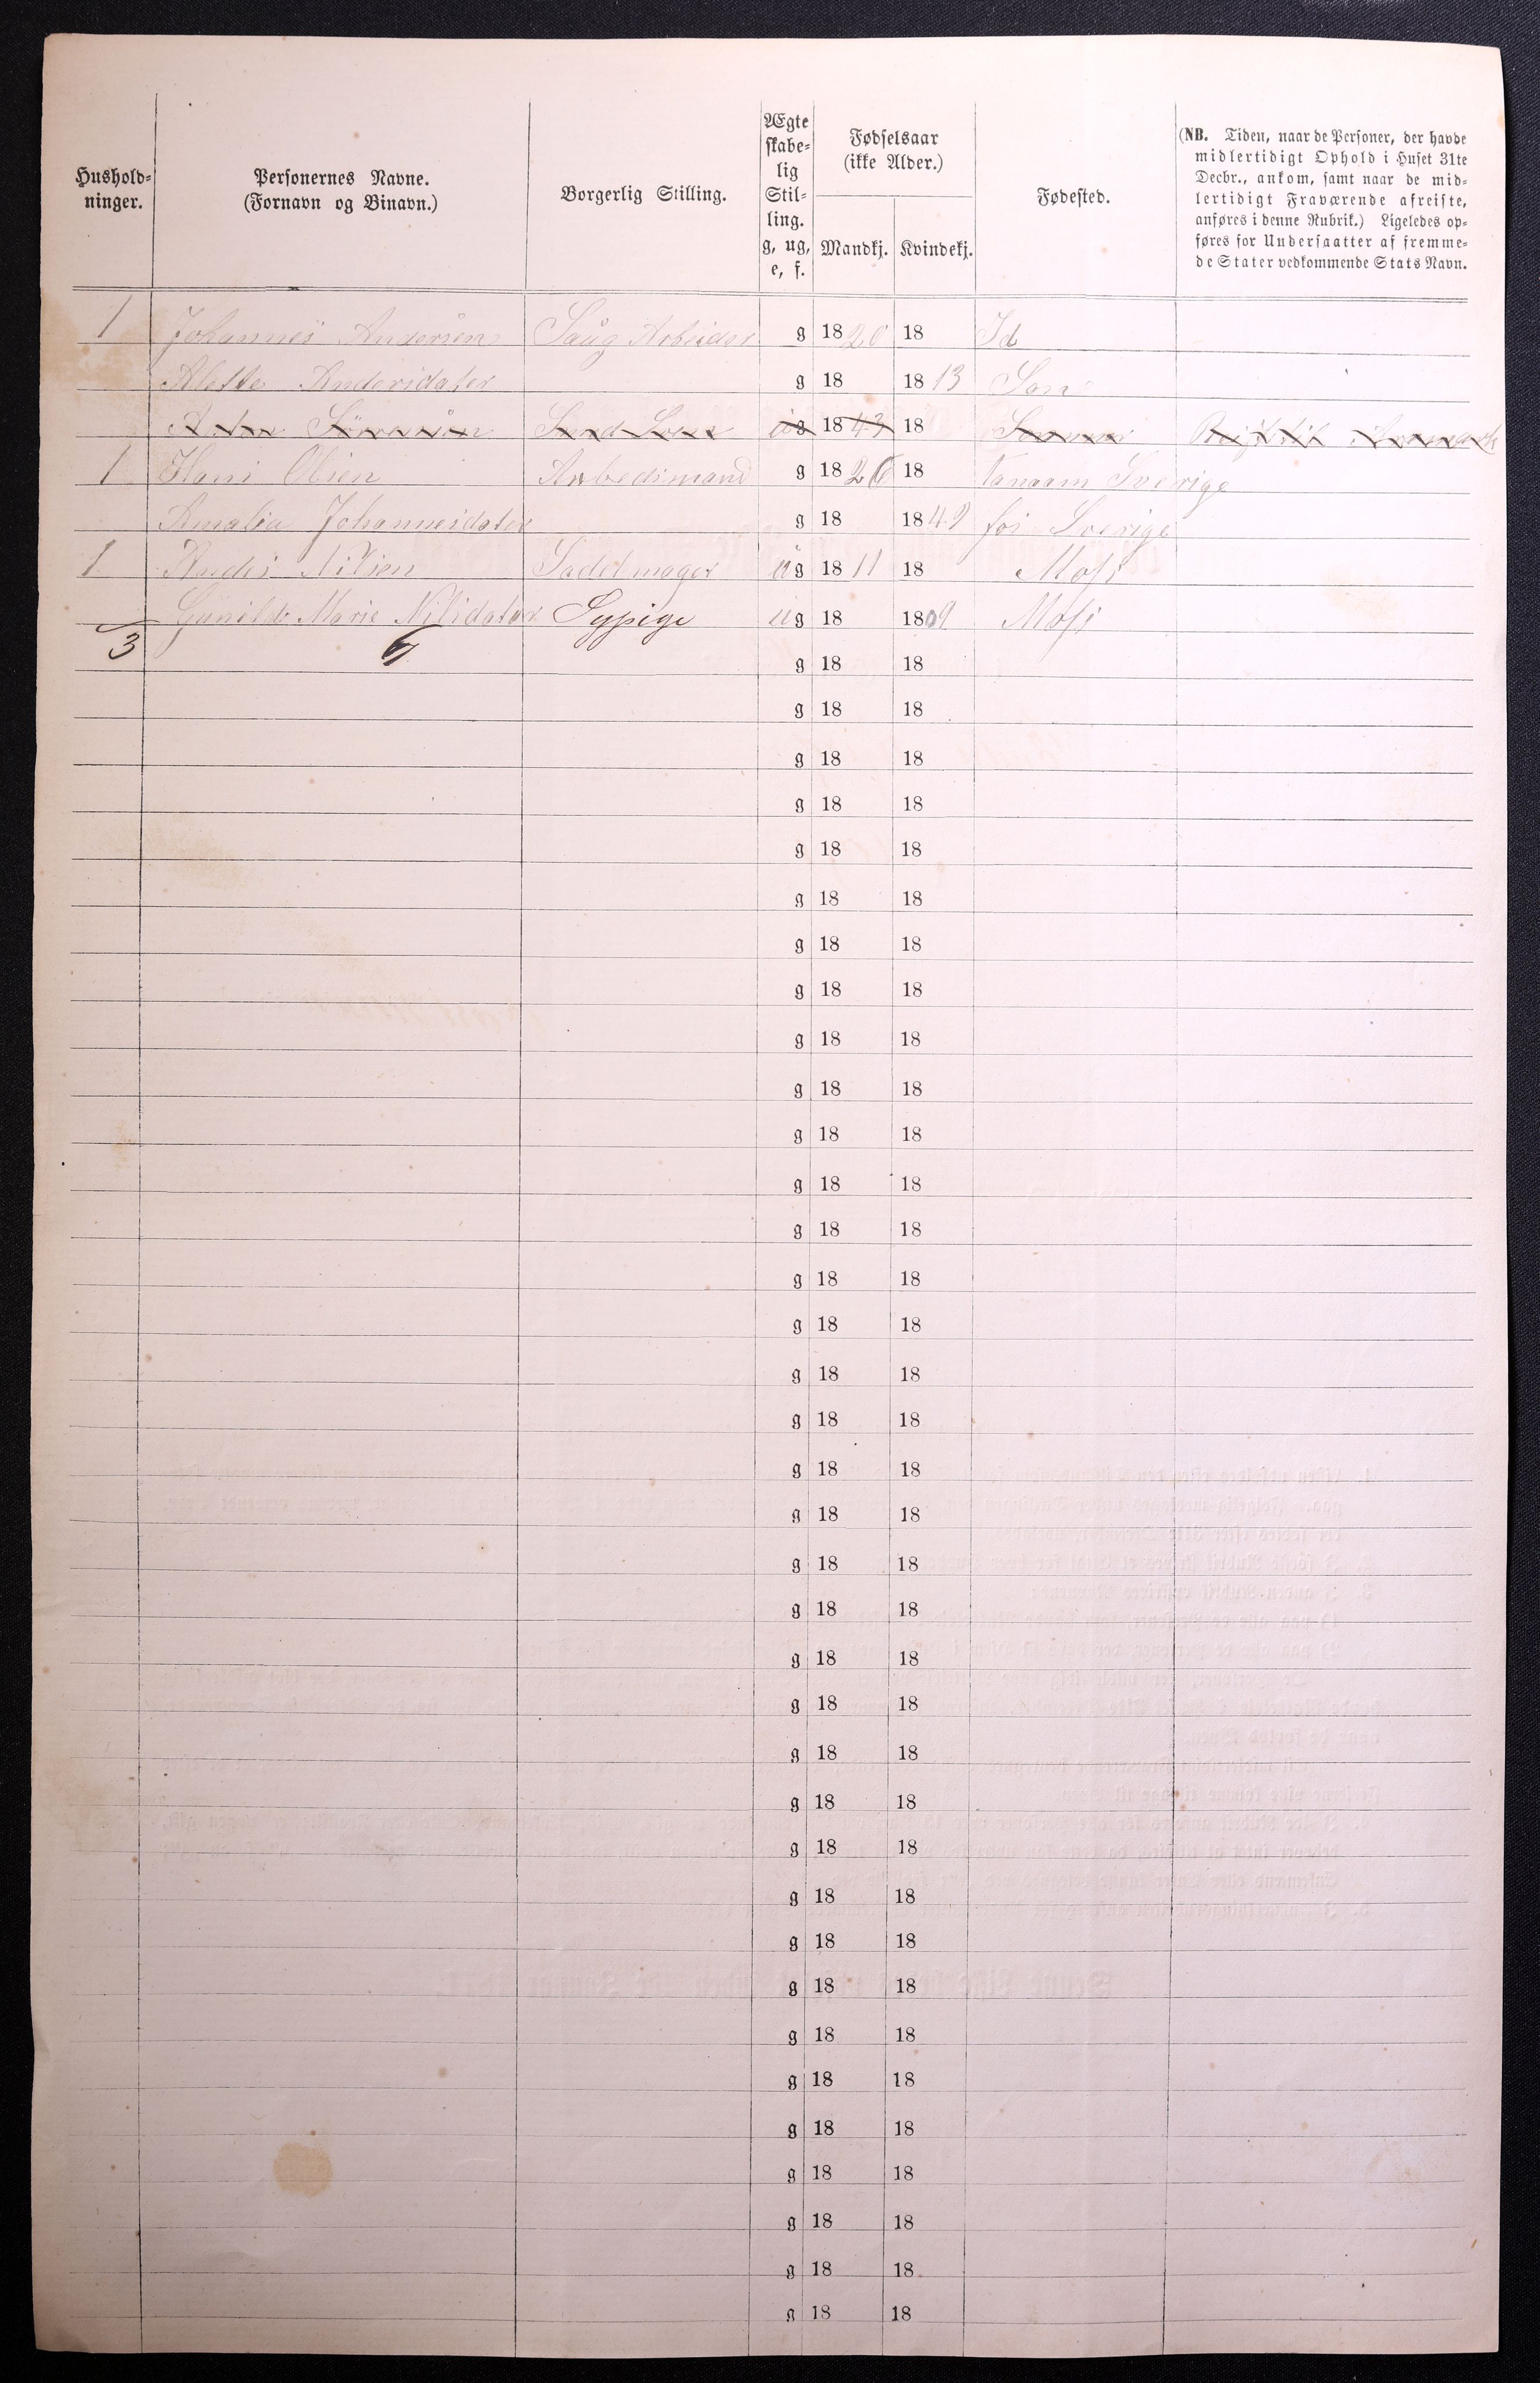 Hushold-
ninger.
Personernes Navne.
(Fornavn og Binavn.)
Borgerlig Stilling.
Ægte
skabe-
lig
Stil-
ling.
g, ug,
e, f.
Fødselsaar
(ikke Alder.)
Mandkj. Kvindekj.
Fødested.
(NB. Tiden, naar de Personer, der havde
midlertidigt Ophold i Huset 31te
Decbr., ankom, samt naar de mid-
lertidigt Fraværende afreiste,
anføres i denne Rubrik.) Ligeledes op-
føres for Undersaatter af fremme-
de Stater vedkommende Stats Navn.
1 Johannes Andersen Saug Arbeider g 1820 18 Id
Alette Andersdater g 18 1813 Son
ug 1843 18
1 Hans Olsen Arbedsmand g 1826 18 Tanaam Sverige
Amalia Johannesdater g 18 1849 fos Sverige
1 Anders Nilsen Sadelmager ug 1811 18 Moss
Gunild Marie Nilsdater Sypige ug 18 1809 Moss
3 6 g 18 18
g 18 18
g 18 18
g 18 18
g 18 18
g 18 18
g 18 18
g 18 18
g 18 18
g 18 18
g 18 18
g 18 18
g 18 18
g 18 18
g 18 18
g 18 18
g 18 18
g 18 18
g 18 18
g 18 18
g 18 18
g 18 18
g 18 18
g 18 18
g 18 18
g 18 18
g 18 18
g 18 18
g 18 18
g 18 18
g 18 18
g 18 18
g 18 18
g 18 18
g 18 18
g 18 18